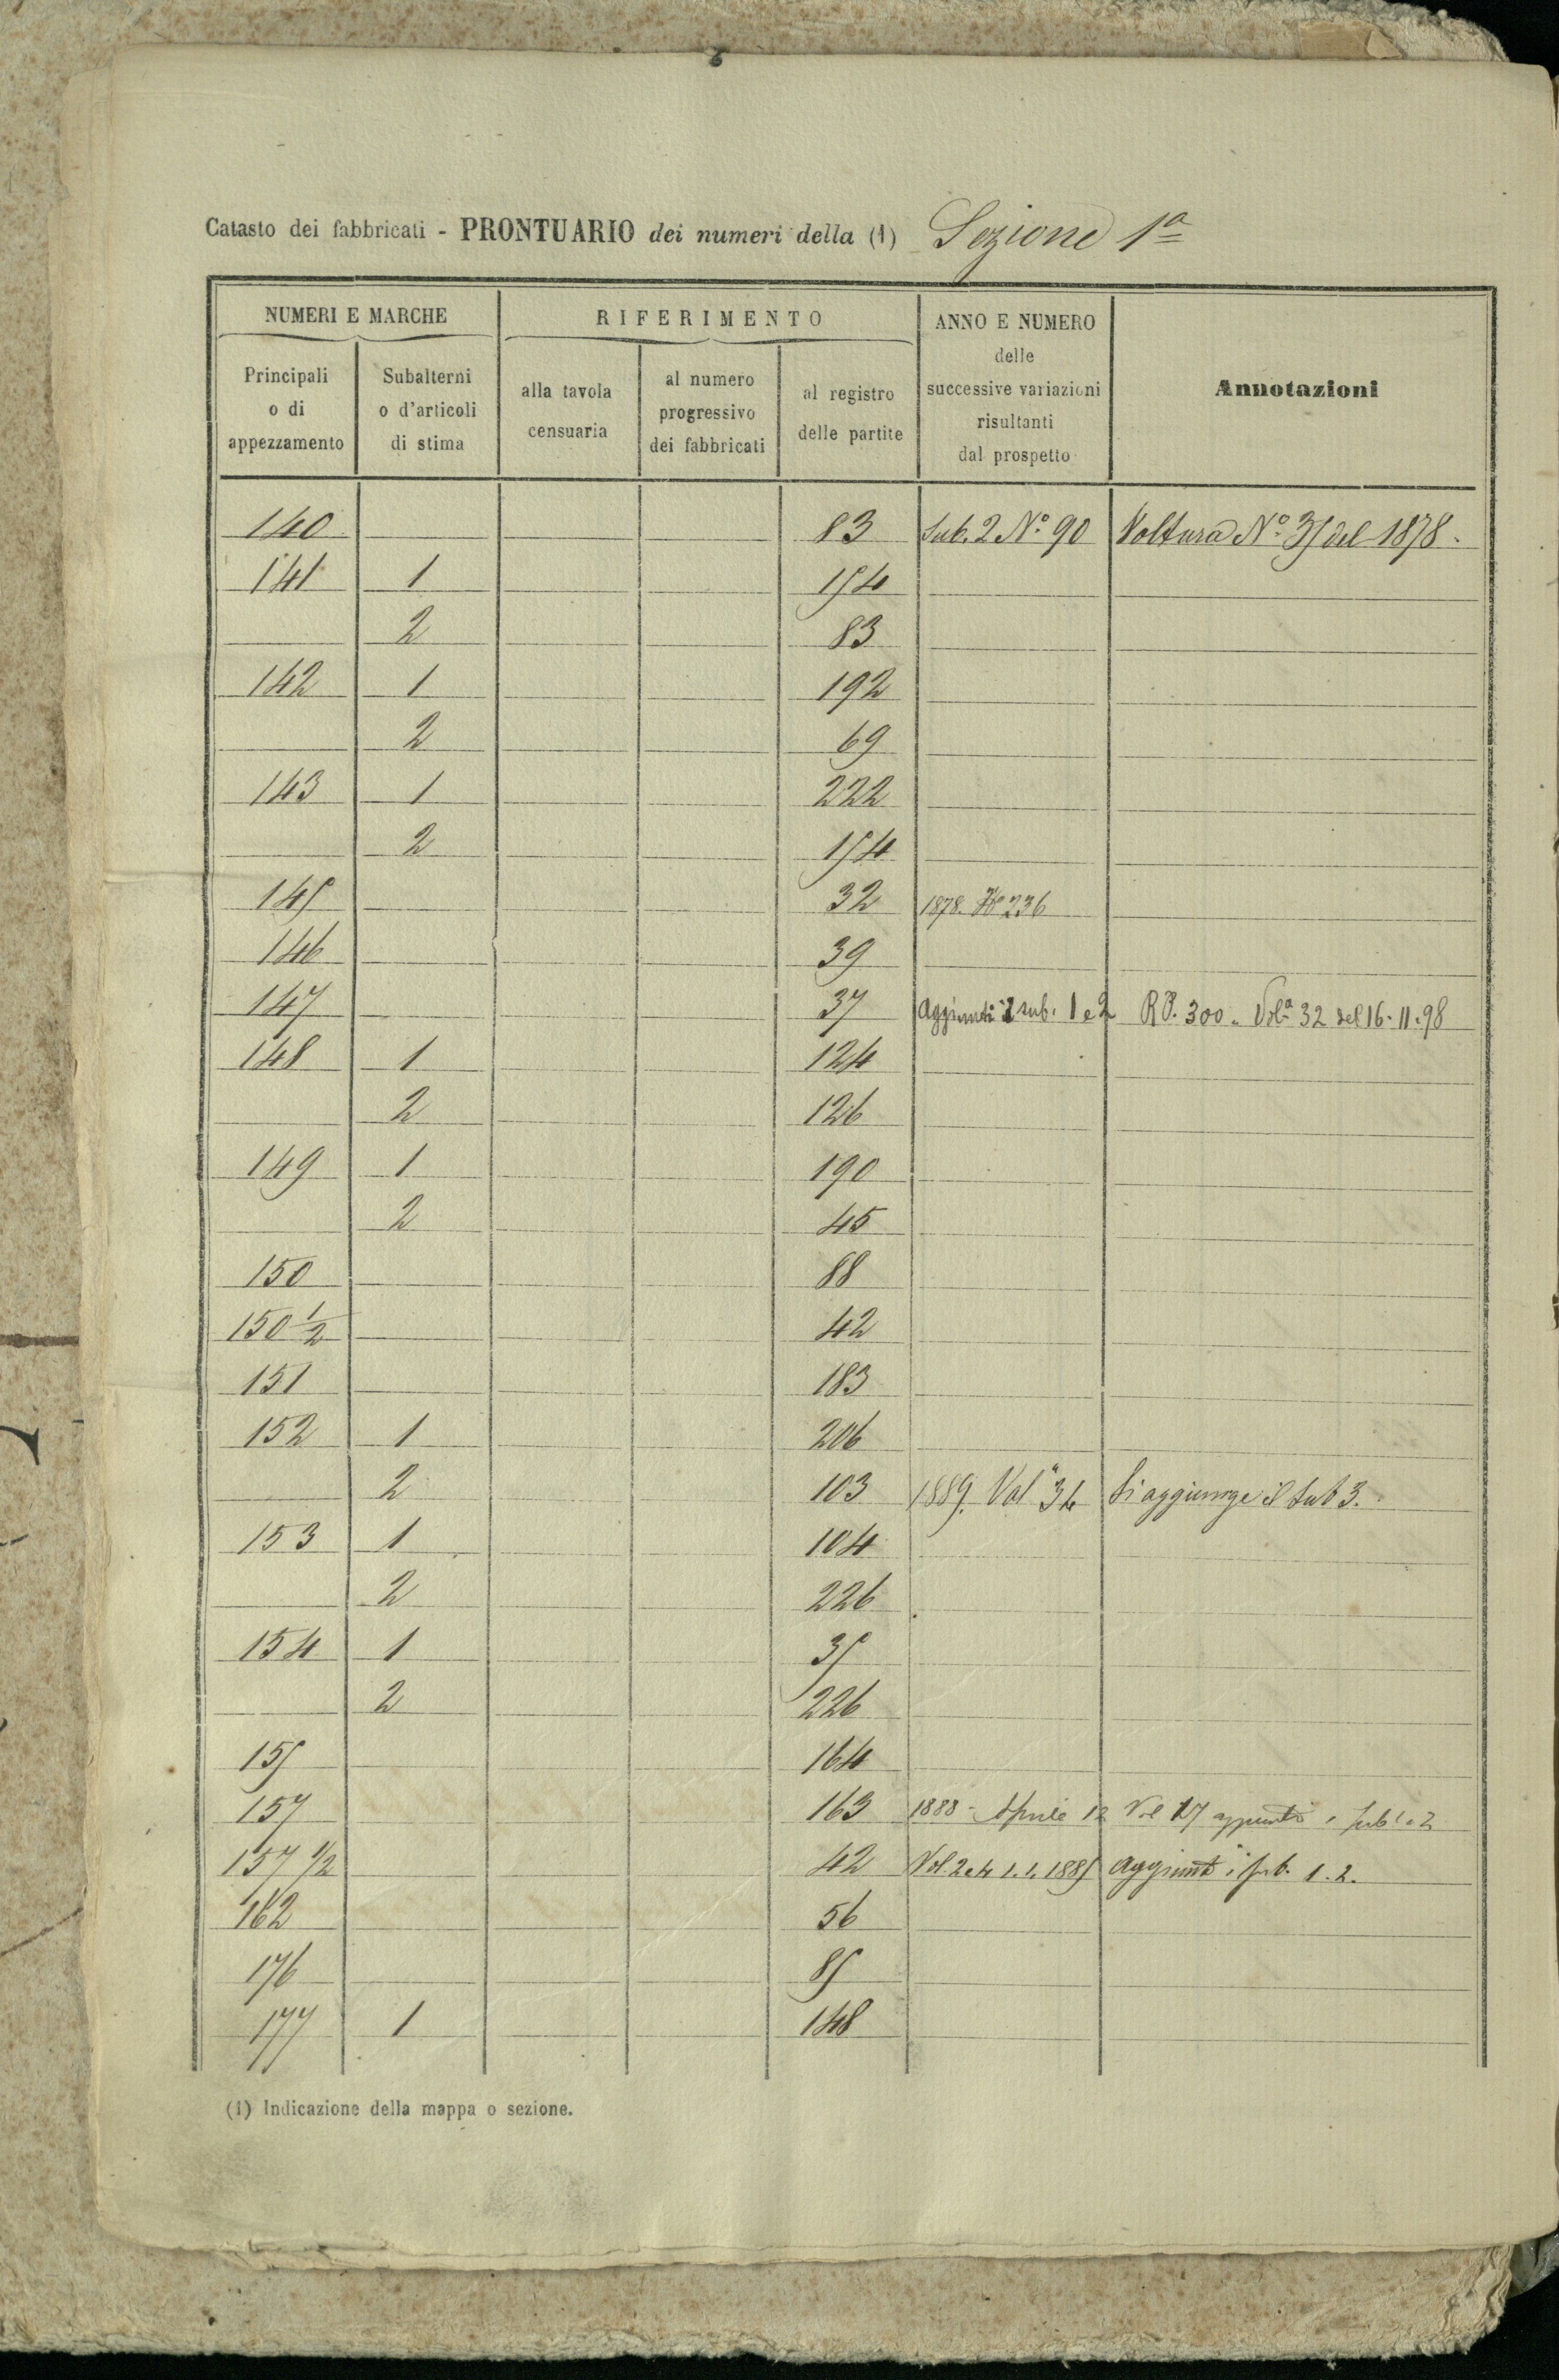 Catasto dei fabbricati - PRONTUARIO dei numeri della (1) Sezione 1ª
NUMERI E MARCHE
RIFERIMENTO
ANNO E NUMERO
delle
successive variazioni
risultanti
dal prospetto
Annotazioni
Principali
o di
appezzamento
Subalterni
o d'articoli
di stima
alla tavola
censuaria
al numero
progressivo
dei fabbricati
al registro
delle partite
140 83 Sub. 2 Nº 90 Voltura Nº 35 del 1878.
141 1 154
2 83
142 1 192
2 69
143 1 222
2 154
145 32 1878. Nº 236
146 39
147 37 Aggiunti i sub. 1 e 2 R.P. 300. Volª 32 del 16.11.98
148 1 124
2 126
149 1 190
2 45
150 88
150 1/2 42
151 183
152 1 206
2 103 1889. Volª 34 Si aggiunge il sub 3.
153 1 104
2 226
154 1 35
2 226
155 164
157 163 1888 - Aprile 12 Vol 17 i sub 1 e 2
157 1/2 42 Vol. 2e4 1.1.1885 Aggiunti i sub. 1.2.
162 56
176 85
177 1 148
(1) Indicazione della mappa o sezione.